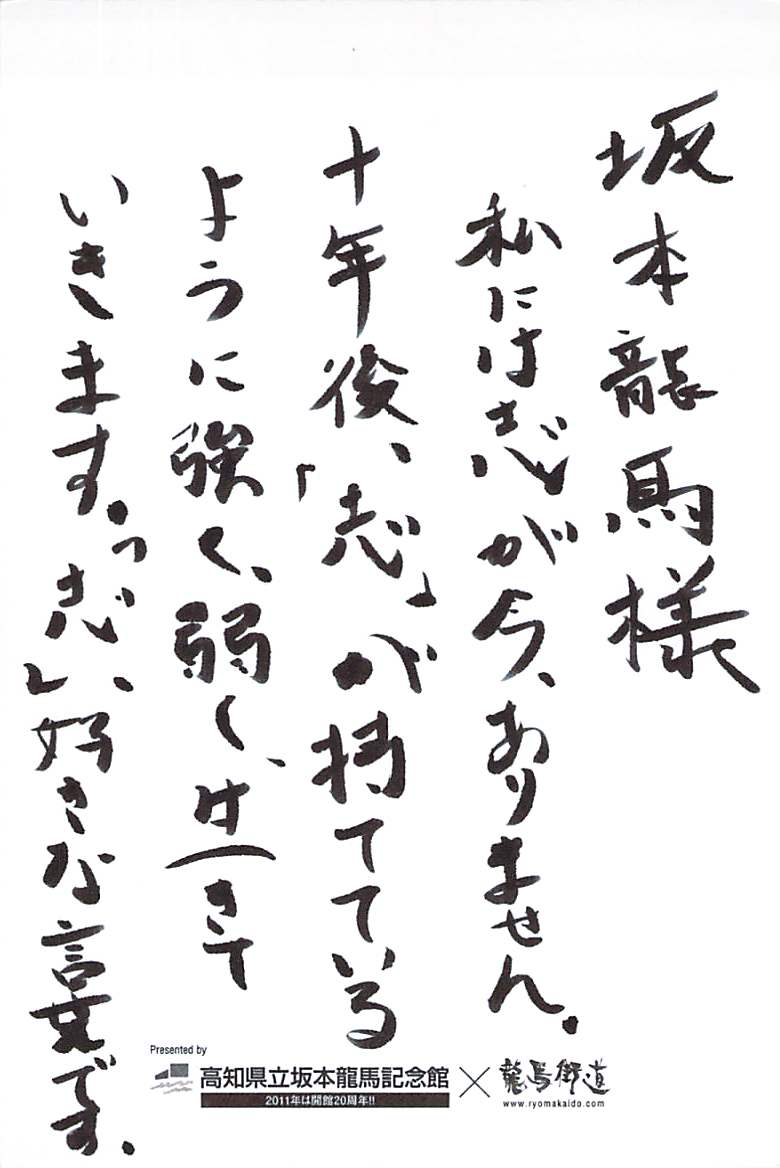 坂本龍馬様
私には志が今、ありません。
十年後、「志」が持てている
ように強く、弱く、生きて
いきます。「志」、好きな言葉です。
Presented by
高知県立坂本龍馬記念館
2011年は開館20周年!!
×
龍馬街道
www.ryomakaido.com